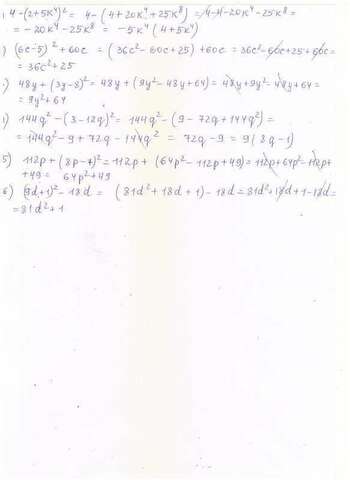 ) 4-(2+5k⁴)² = 4-(4+20k⁴+25k⁸) = 4-4-20k⁴-25k⁸ =
= -20k⁴-25k⁸ = -5k⁴(4+5k⁴)
) (6c-5)²+60c = (36c²-60c+25)+60c = 36c²-60c+25+60c =
= 36c²+25
) 48y+(3y-8)² = 48y+(9y²-48y+64) = 48y+9y²-48y+64 =
= 9y²+64
) 144q²-(3-12q)² = 144q²-(9-72q+144q²) =
= 144q²-9+72q-144q² = 72q-9 = 9(8q-1)
5) 112p+(8p-7)² = 112p+(64p²-112p+49) = 112p+64p²-112p
+49 = 64p²+49
6) (9d+1)²-18d = (81d²+18d+1)-18d = 81d²+18d+1-18d =
= 81d²+1